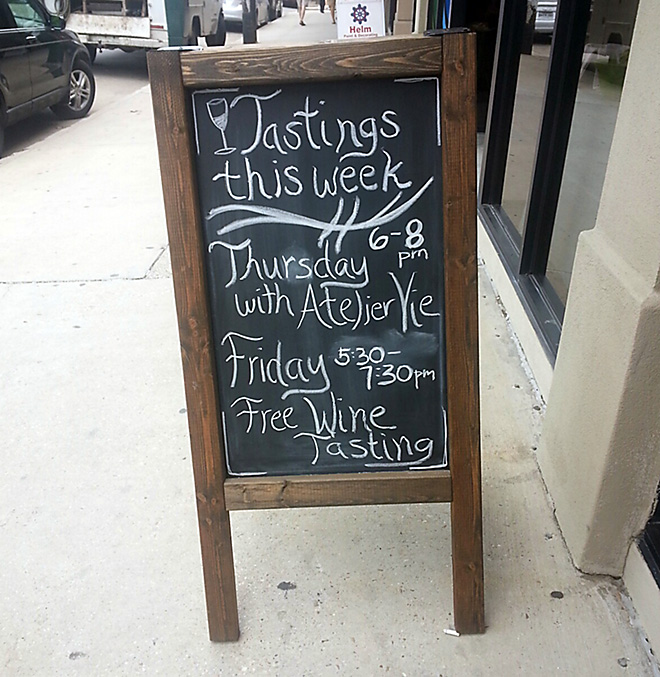 Helm
Paint & Decorating
Tastings
this week
6-8
pm
Thursday
with Atelier Vie
Friday 5:30-
7:30pm
Free Wine
Tasting